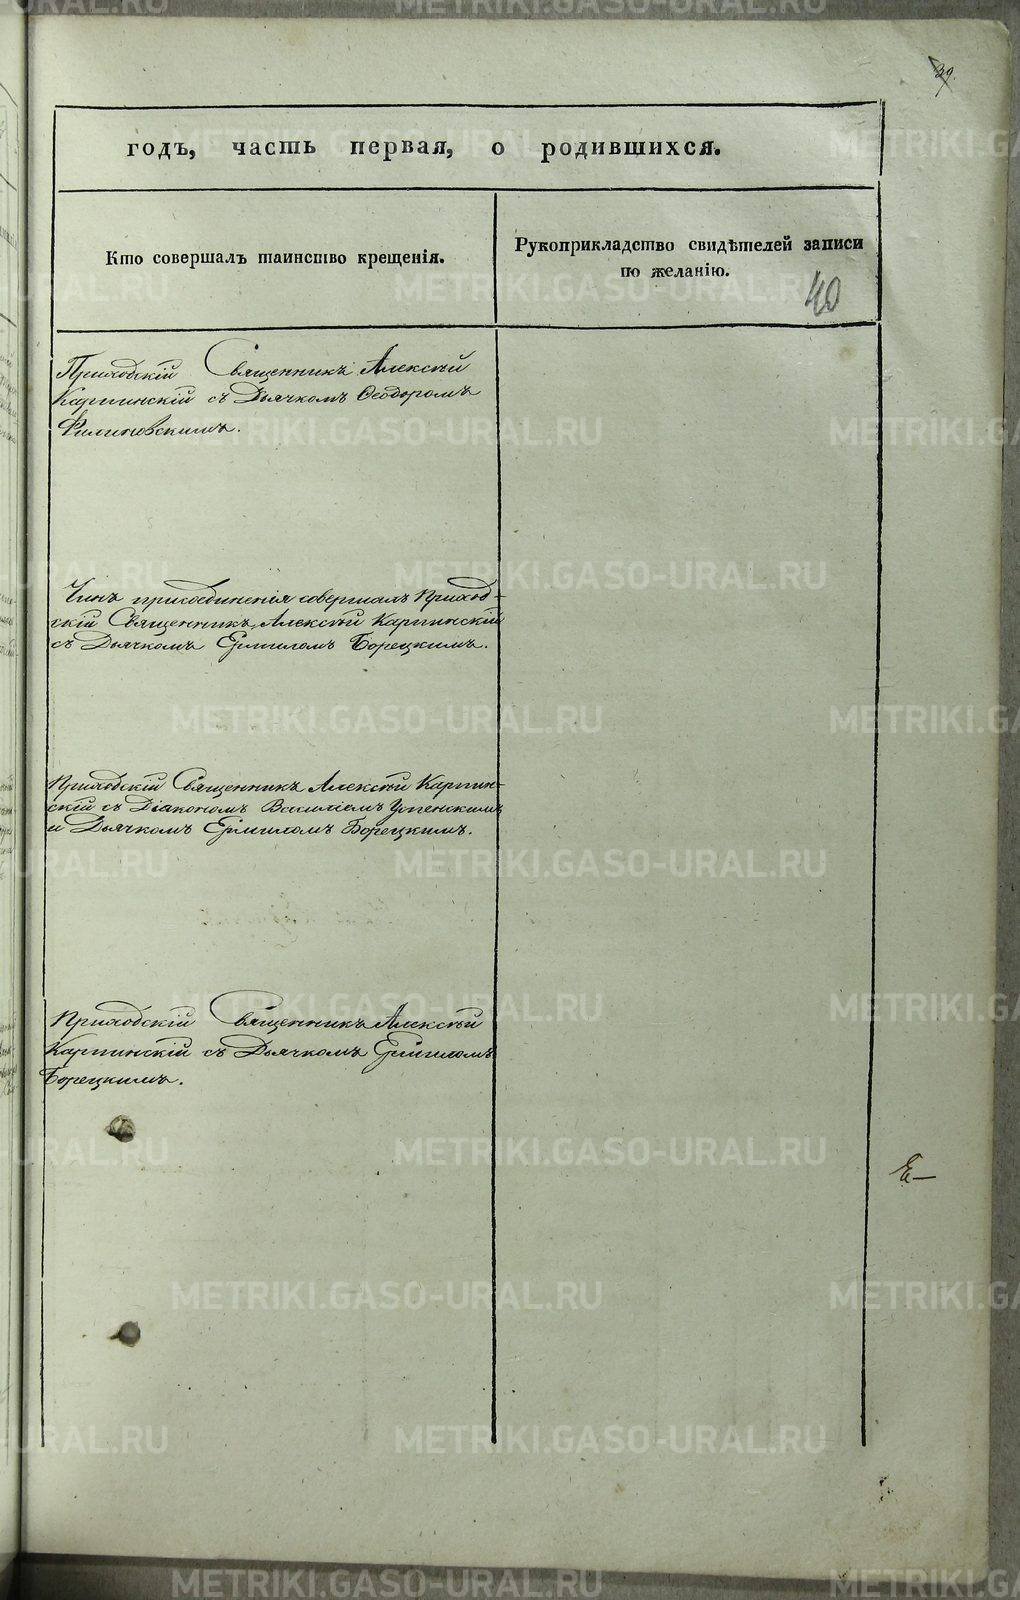 39.
годъ, часть первая, о родившихся.
Кто совершалъ таинство крещенія.
Рукоприкладство свидѣтелей записи
по желанію.
40
Приходскій Священникъ Алексѣй
Карпинскій съ Дьячкомъ Ѳеодоромъ
Филиновскимъ.
Чинъ присоединенія совершалъ Приход-
скій Священникъ Алексѣй Карпинскій
съ Дьячкомъ Ермиломъ Борецкимъ.
Приходскій Священникъ Алексѣй Карпин-
скій съ Діакономъ Василіемъ Успенскимъ
и Дьячкомъ Ермиломъ Борецкимъ.
Приходскій Священникъ Алексѣй
Карпинскій съ Дьячкомъ Ермиломъ
Борецкимъ.
METRIKI.GASO-URAL.RU